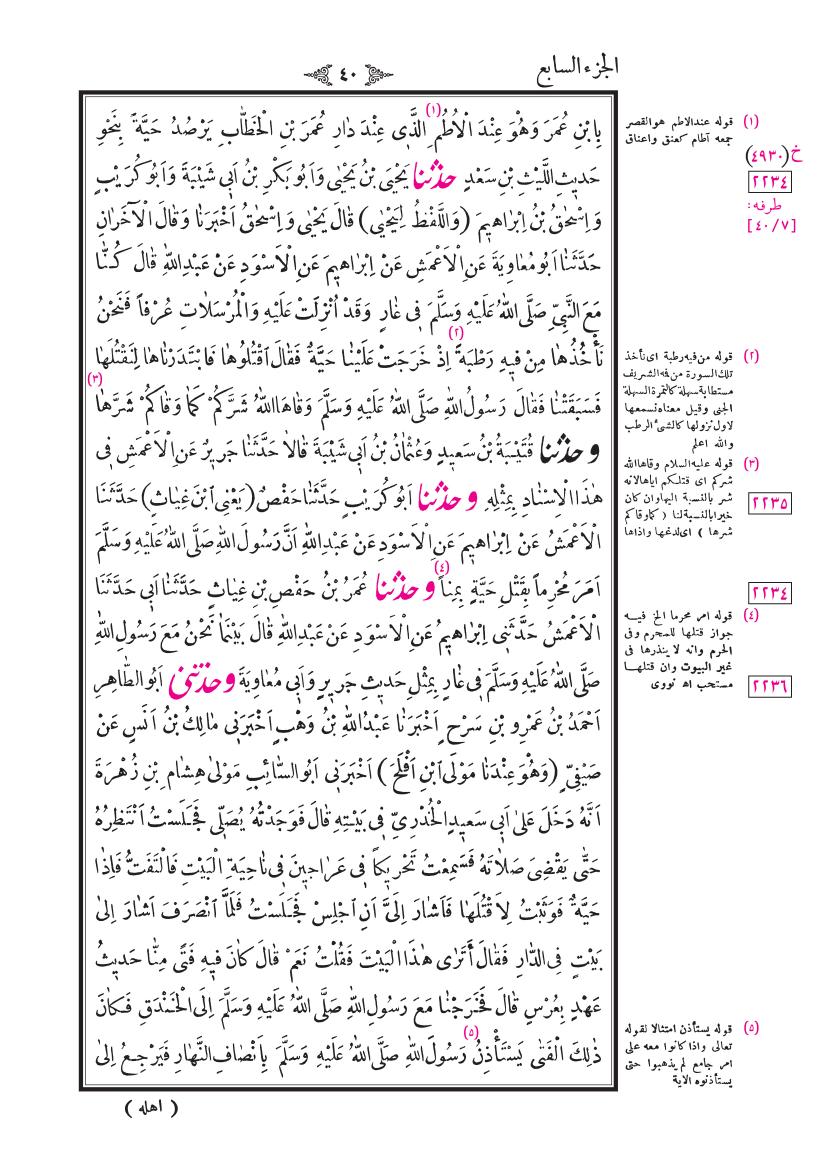 الجزء السابع
٤٠
بِابْنِ عُمَرَ وَهُوَ عِنْدَ الْاُطُمِ (١) الَّذِى عِنْدَ دَارِ عُمَرَ بْنِ الْخَطَّابِ يَرْصُدُ حَيَّةً بِنَحْوِ
حَدِيثِ اللَّيْثِ بْنِ سَعْدٍ حَدَّثَنَا يَحْيَى بْنُ يَحْيٰى وَاَبُو بَكْرِ بْنُ اَبِى شَيْبَةَ وَاَبُو كُرَيْبٍ
وَاِسْحٰقُ بْنُ اِبْرَاهِيمَ (وَاللَّفْظُ لِيَحْيٰى) قَالَ يَحْيٰى وَاِسْحٰقُ اَخْبَرَنَا وَقَالَ الْآخَرَانِ
حَدَّثَنَا اَبُو مُعَاوِيَةَ عَنِ الْاَعْمَشِ عَنْ اِبْرَاهِيمَ عَنِ الْاَسْوَدِ عَنْ عَبْدِ اللّٰهِ قَالَ كُنَّا
مَعَ النَّبِىِّ صَلَّى اللّٰهُ عَلَيْهِ وَسَلَّمَ فِى غَارٍ وَقَدْ اُنْزِلَتْ عَلَيْهِ وَالْمُرْسَلَاتِ عُرْفًا فَنَحْنُ
نَأْخُذُهَا مِنْ فِيهِ رَطْبَةً (٢) اِذْ خَرَجَتْ عَلَيْنَا حَيَّةٌ فَقَالَ اقْتُلُوهَا فَابْتَدَرْنَاهَا لِنَقْتُلَهَا
فَسَبَقَتْنَا فَقَالَ رَسُولُ اللّٰهِ صَلَّى اللّٰهُ عَلَيْهِ وَسَلَّمَ وَقَاهَا اللّٰهُ شَرَّكُمْ كَمَا وَقَاكُمْ شَرَّهَا (٣)
وَحَدَّثَنَا قُتَيْبَةُ بْنُ سَعِيدٍ وَعُثْمَانُ بْنُ اَبِى شَيْبَةَ قَالَا حَدَّثَنَا جَرِيرٌ عَنِ الْاَعْمَشِ فِى
هٰذَا الْاِسْنَادِ بِمِثْلِهِ وَحَدَّثَنَا اَبُو كُرَيْبٍ حَدَّثَنَا حَفْصٌ (يَعْنِى ابْنَ غِيَاثٍ) حَدَّثَنَا
الْاَعْمَشُ عَنْ اِبْرَاهِيمَ عَنِ الْاَسْوَدِ عَنْ عَبْدِ اللّٰهِ اَنَّ رَسُولَ اللّٰهِ صَلَّى اللّٰهُ عَلَيْهِ وَسَلَّمَ
اَمَرَ مُحْرِمًا بِقَتْلِ حَيَّةٍ بِمِنًى (٤) وَحَدَّثَنَا عُمَرُ بْنُ حَفْصِ بْنِ غِيَاثٍ حَدَّثَنَا اَبِى حَدَّثَنَا
الْاَعْمَشُ حَدَّثَنِى اِبْرَاهِيمُ عَنِ الْاَسْوَدِ عَنْ عَبْدِ اللّٰهِ قَالَ بَيْنَمَا نَحْنُ مَعَ رَسُولِ اللّٰهِ
صَلَّى اللّٰهُ عَلَيْهِ وَسَلَّمَ فِى غَارٍ بِمِثْلِ حَدِيثِ جَرِيرٍ وَاَبِى مُعَاوِيَةَ وَحَدَّثَنِى اَبُو الطَّاهِرِ
اَحْمَدُ بْنُ عَمْرِو بْنِ سَرْحٍ اَخْبَرَنَا عَبْدُ اللّٰهِ بْنُ وَهْبٍ اَخْبَرَنِى مَالِكُ بْنُ اَنَسٍ عَنْ
صَيْفِىٍّ (وَهُوَ عِنْدَنَا مَوْلَى ابْنِ اَفْلَحَ) اَخْبَرَنِى اَبُو السَّائِبِ مَوْلٰى هِشَامِ بْنِ زُهْرَةَ
اَنَّهُ دَخَلَ عَلٰى اَبِى سَعِيدٍ الْخُدْرِىِّ فِى بَيْتِهِ قَالَ فَوَجَدْتُهُ يُصَلِّى فَجَلَسْتُ اَنْتَظِرُهُ
حَتّٰى يَقْضِىَ صَلَاتَهُ فَسَمِعْتُ تَحْرِيكًا فِى عَرَاجِينَ فِى نَاحِيَةِ الْبَيْتِ فَالْتَفَتُّ فَاِذَا
حَيَّةٌ فَوَثَبْتُ لِاَقْتُلَهَا فَاَشَارَ اِلَىَّ اَنِ اجْلِسْ فَجَلَسْتُ فَلَمَّا انْصَرَفَ اَشَارَ اِلٰى
بَيْتٍ فِى الدَّارِ فَقَالَ أَتَرٰى هٰذَا الْبَيْتَ فَقُلْتُ نَعَمْ قَالَ كَانَ فِيهِ فَتًى مِنَّا حَدِيثُ
عَهْدٍ بِعُرْسٍ قَالَ فَخَرَجْنَا مَعَ رَسُولِ اللّٰهِ صَلَّى اللّٰهُ عَلَيْهِ وَسَلَّمَ اِلَى الْخَنْدَقِ فَكَانَ
ذٰلِكَ الْفَتٰى يَسْتَأْذِنُ (٥) رَسُولَ اللّٰهِ صَلَّى اللّٰهُ عَلَيْهِ وَسَلَّمَ بِاَنْصَافِ النَّهَارِ فَيَرْجِعُ اِلٰى
( اهله )
(١) قوله عند الاطم هو القصر
جمعه آطام كعنق واعناق
خ (٤٩٣٠)
٢٢٣٤
طرفه:
[٤٠/٧]
(٢) قوله من فيه رطبة اى نأخذ
تلك السورة من فمه الشريف
مستطابة سهلة كالثمرة السهلة
الجنى وقيل معناه نسمعها
لاول نزولها كالشئ الرطب
والله اعلم
(٣) قوله عليه السلام وقاها الله
شركم اى قتلكم اياها لانه
شر بالنسبة اليها وان كان
خيرا بالنسبة لنا ( كما وقاكم
شرها ) اى لدغها واذاها
٢٢٣٥
٢٢٣٤
(٤) قوله امر محرما الخ فيه
جواز قتلها للمحرم وفى
الحرم وانه لا ينذرها فى
غير البيوت وان قتلها
مستحب اه نووى
٢٢٣٦
(٥) قوله يستأذن امتثالا لقوله
تعالى واذا كانوا معه على
امر جامع لم يذهبوا حتى
يستأذنوه الآية